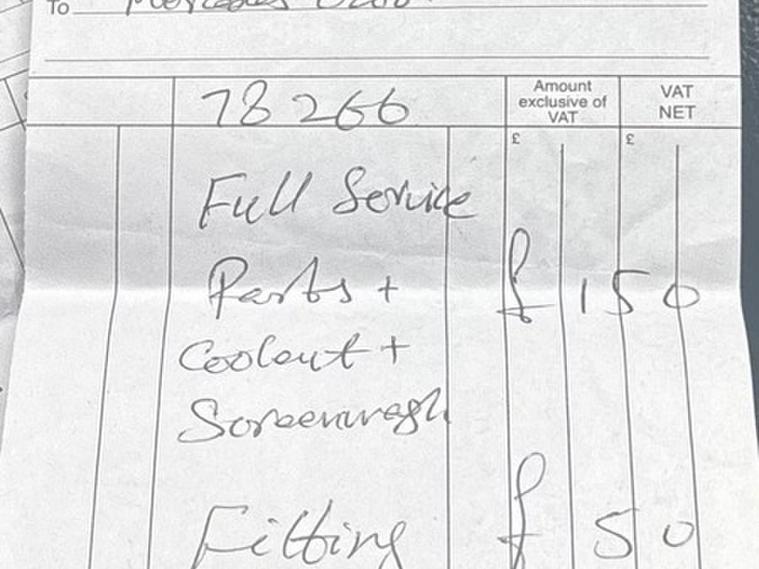 To Mercedes
78266
Amount exclusive of VAT
VAT NET
£ £
Full Service
Parts + £ 150
Coolant +
Screenwash
Fitting £ 50